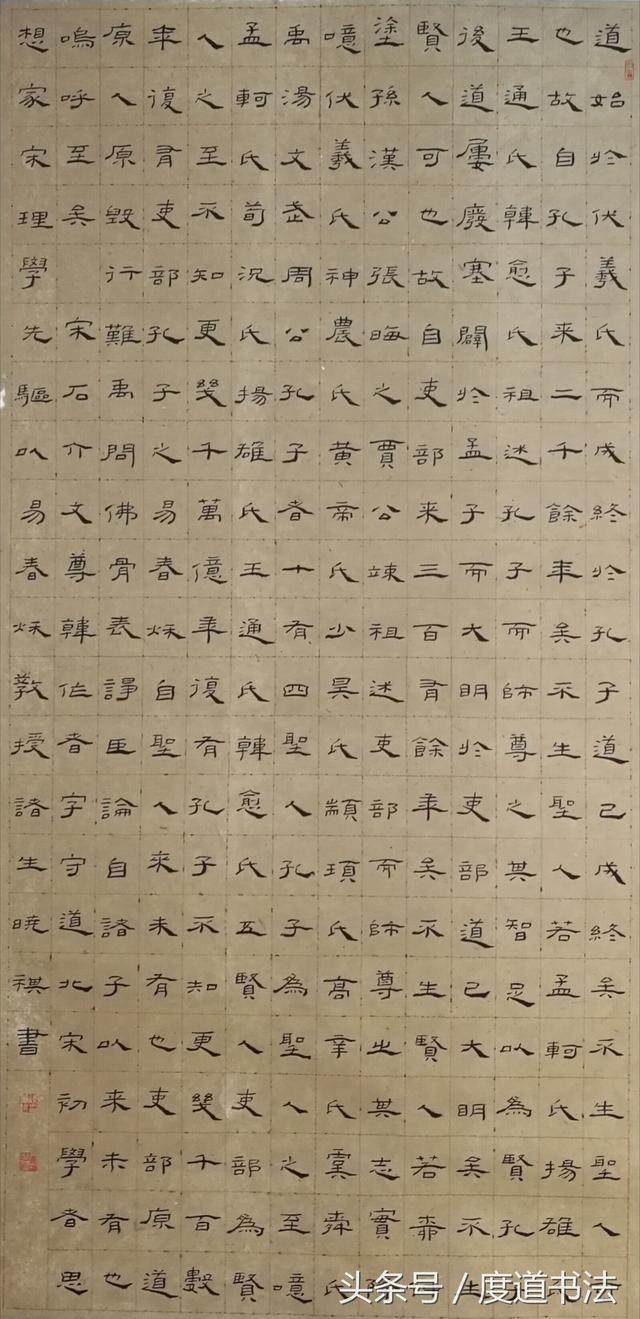 道始於伏羲氏而成終於孔子道已成終矣不生聖人
也故自孔子來二千餘年矣不生聖人若孟軻氏揚雄
王通氏韓愈氏祖述孔子而師尊之其智足以為賢孔
後道屢廢塞闢於孟子而大明於吏部道已大明矣不生
賢人可也故自吏部來三百有餘年矣不生賢人若
塗孫漢公張晦之賈公竦祖述吏部而師尊之其志實
噫伏羲氏神農氏黃帝氏少昊氏顓頊氏高辛氏虞舜氏
禹湯文武周公孔子者十有四聖人孔子為聖人之至噫
孟軻氏荀況氏揚雄氏王通氏韓愈氏五賢人吏部為賢
人之至不知更幾千萬億年復有孔子不知更幾千百數
年復有吏部孔子之易春秋自聖人來未有也吏部原道
原人原毀行難禹問佛骨表諍臣論自諸子以來未有也
嗚呼至矣 宋石介文尊韓作者字守道北宋初學者思
想家宋理學先驅以易春秋教授諸生曉祺書
头条号 / 度道书法